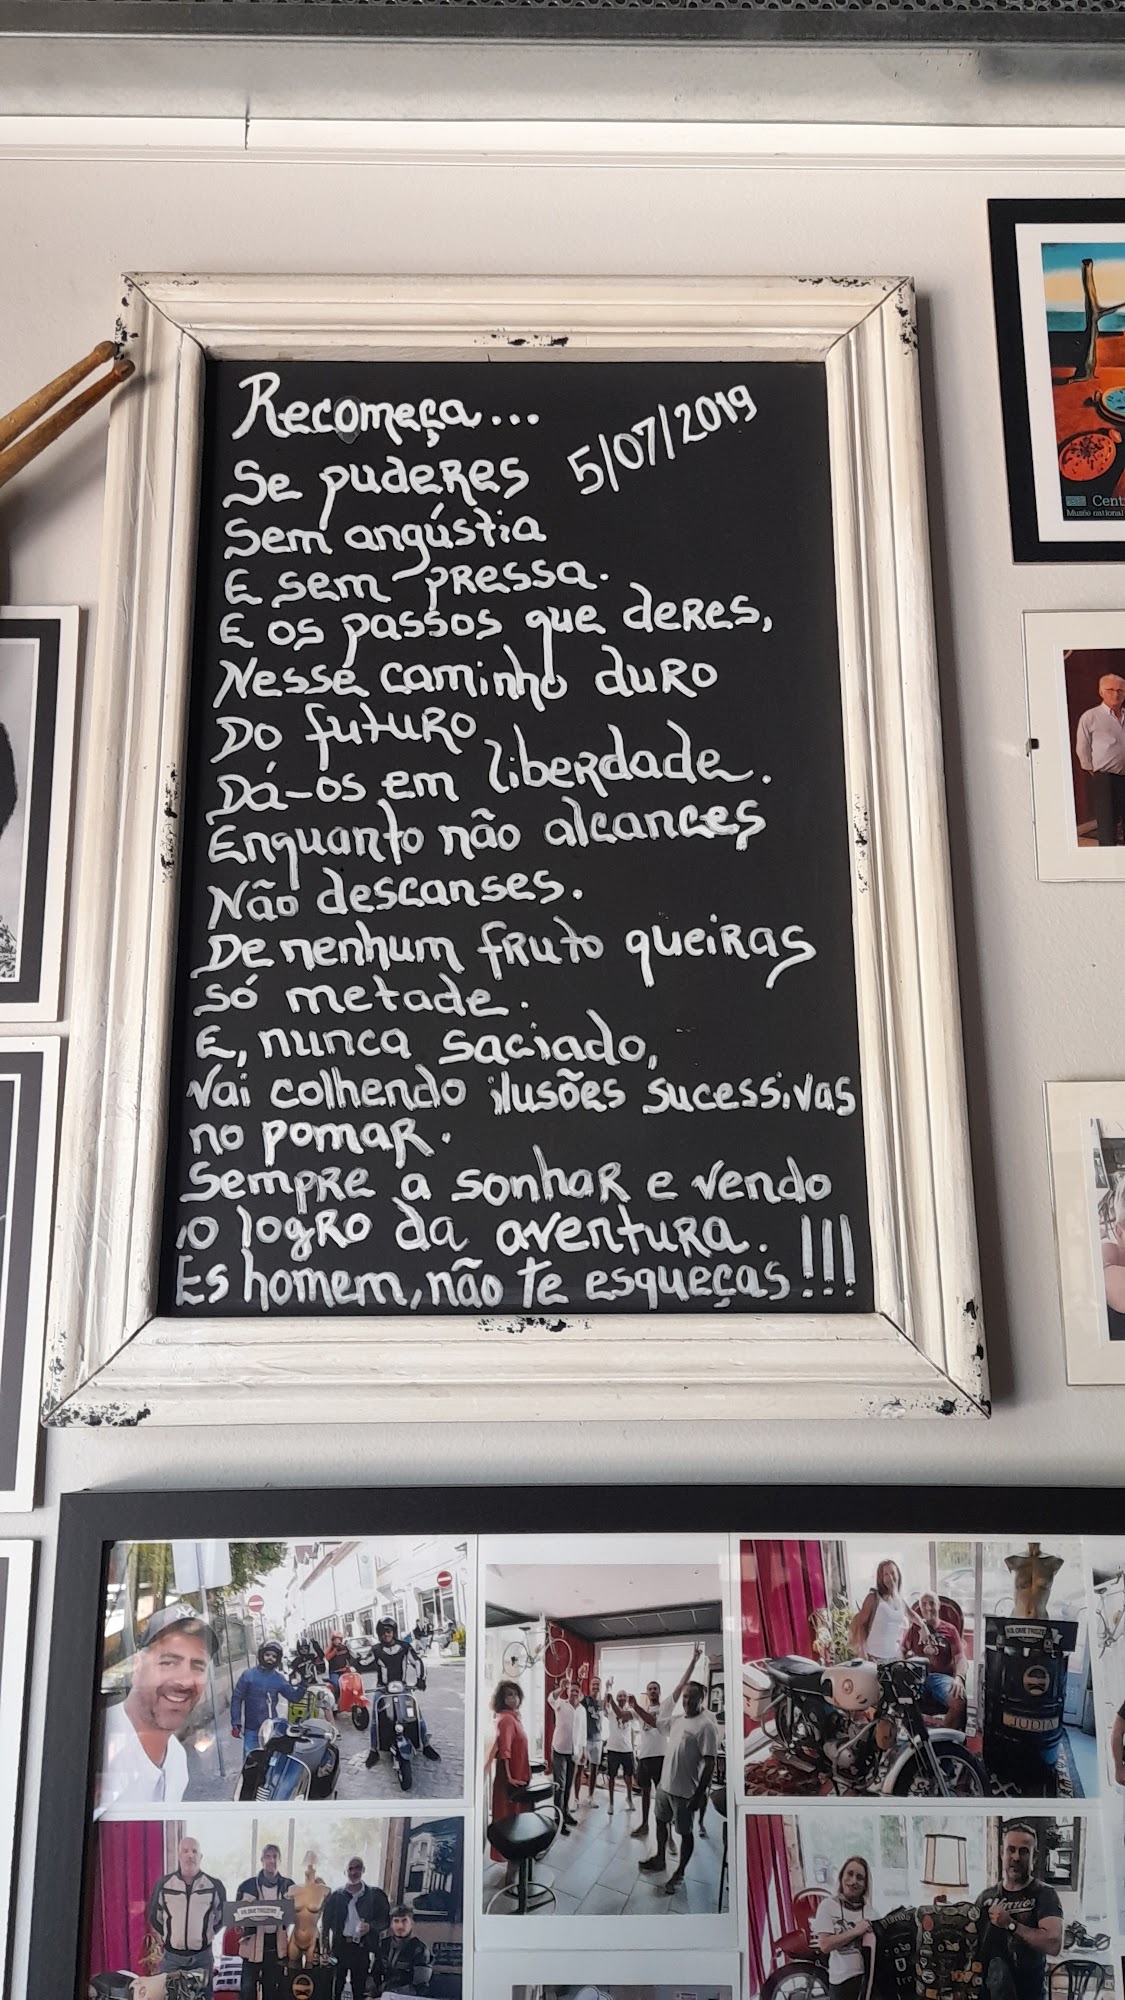 Recomeça...
5/07/2019
Se puderes
Sem angústia
E sem pressa.
E os passos que deres,
Nesse caminho duro
Do futuro
Dá-os em liberdade.
Enquanto não alcances
Não descanses.
De nenhum fruto queiras
só metade.
E, nunca saciado,
Vai colhendo ilusões sucessivas
no pomar.
Sempre a sonhar e vendo
o logro da aventura.
És homem, não te esqueças!!!
Cent
Musée national
KILOMETROZERO
JUDIA
KILOMETROZERO
Warrior